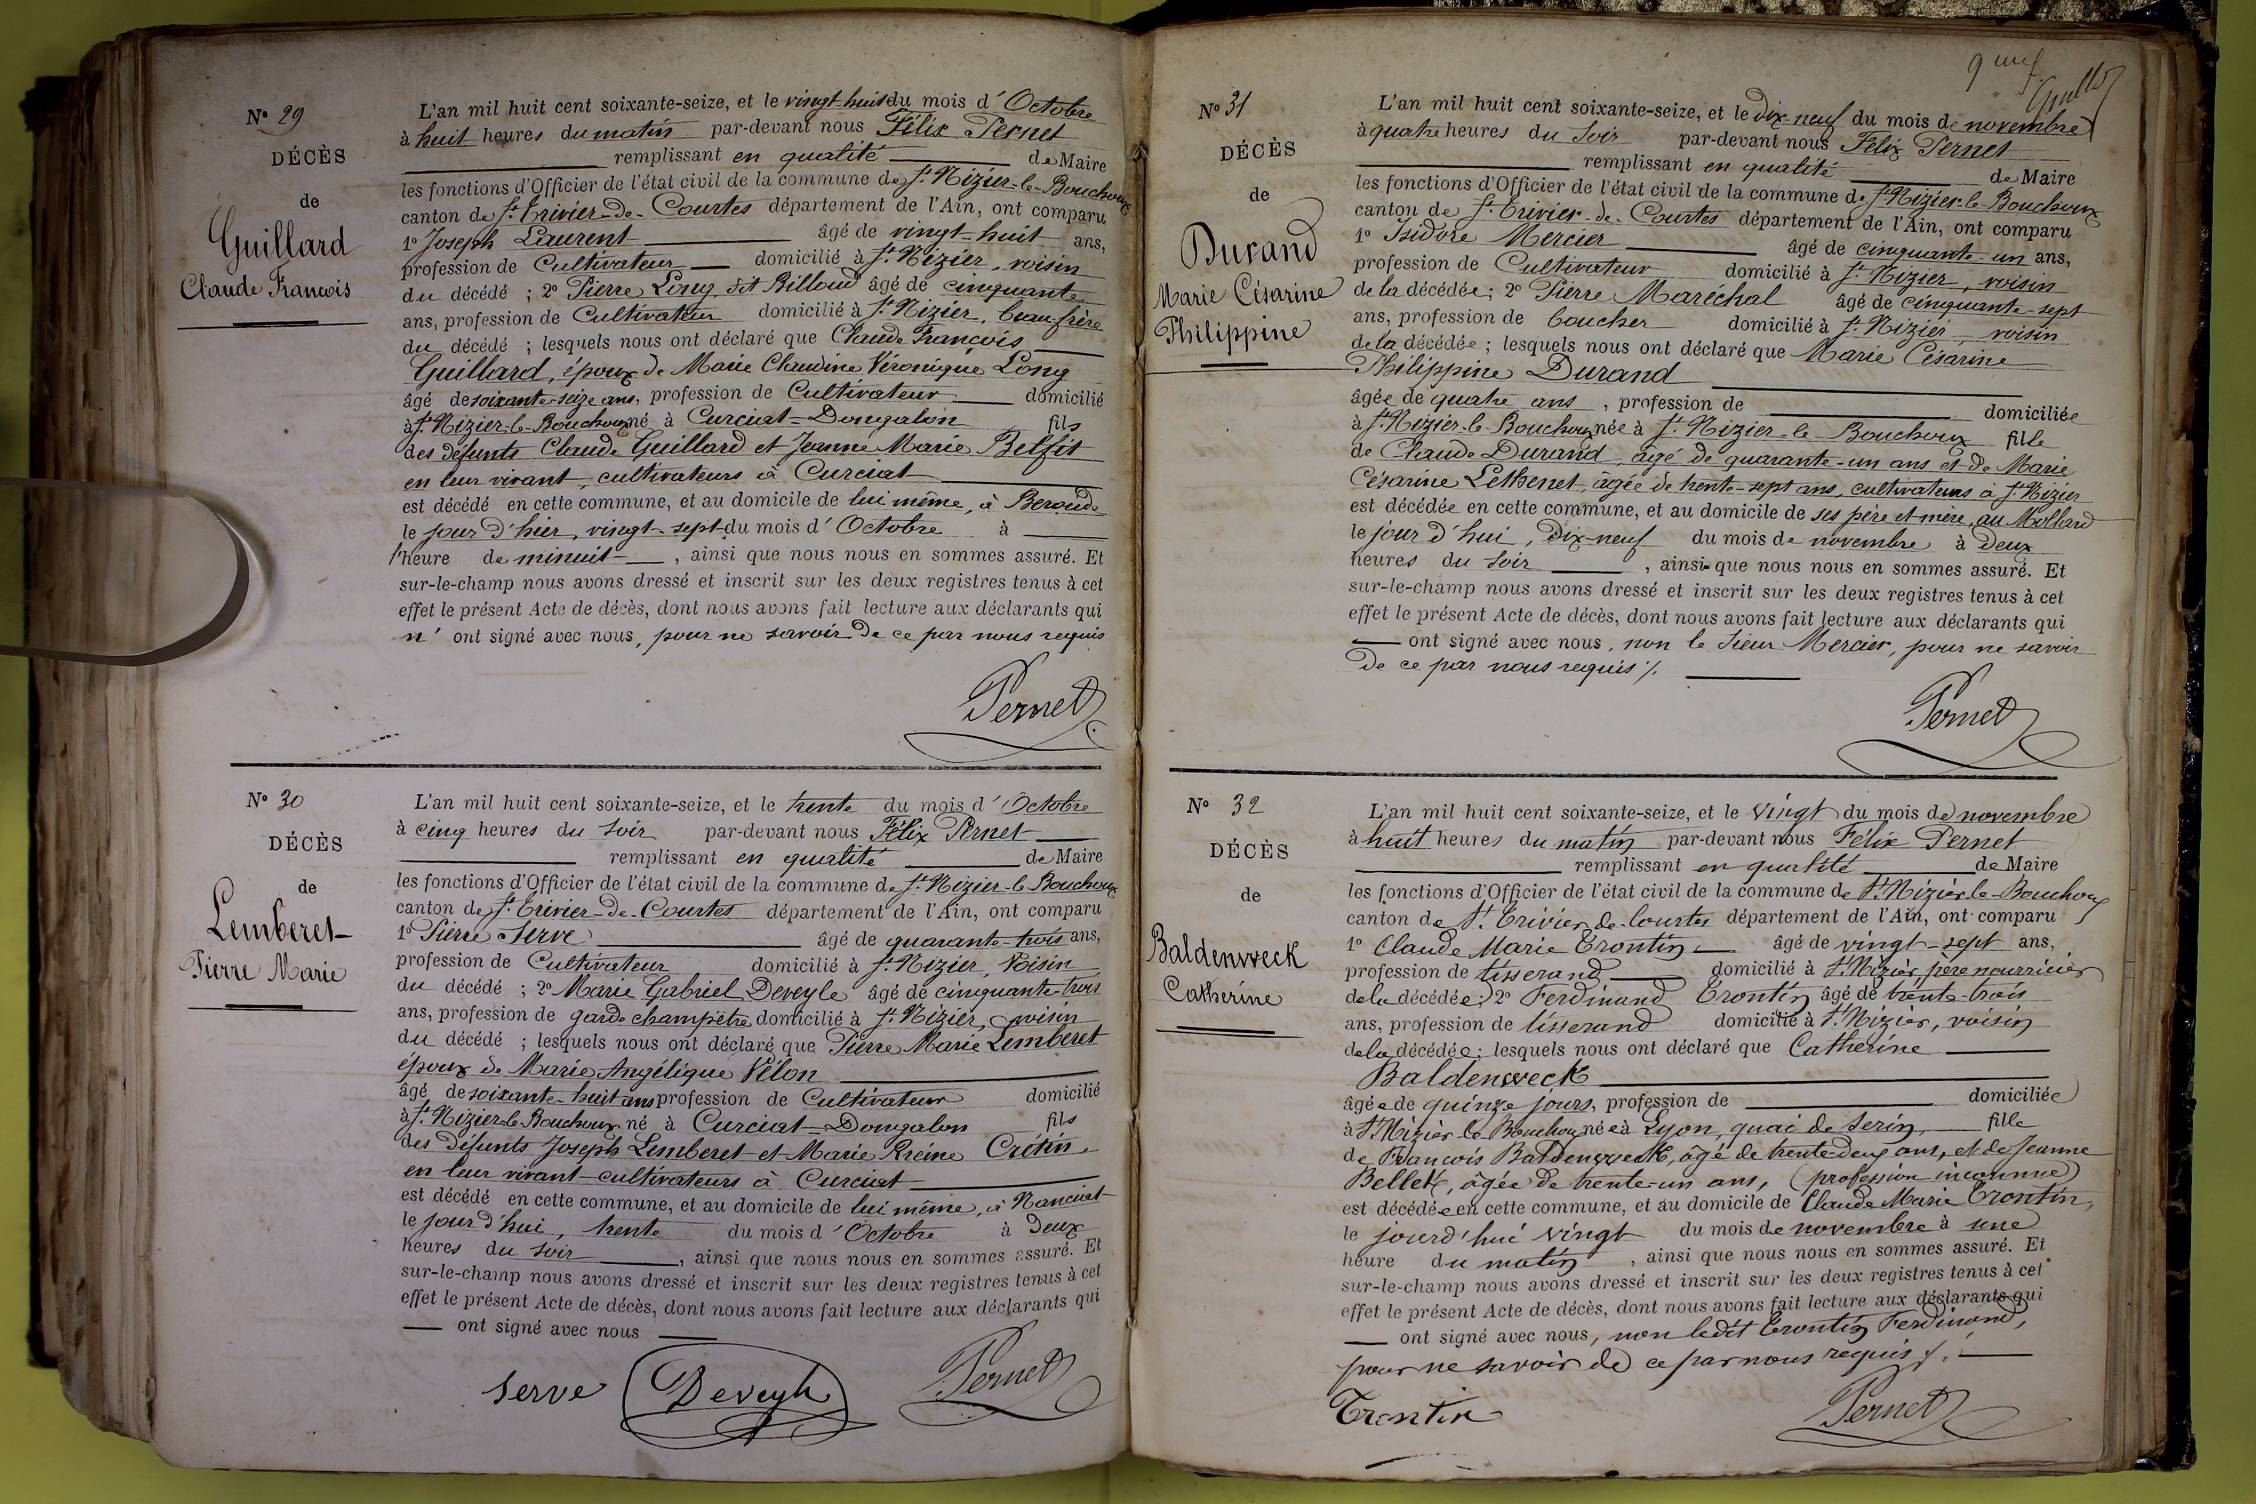 N° 29
DÉCÈS
de
Guillard
Claude François
L'an mil huit cent soixante-seize, et le vingt-huit du mois d'Octobre
à huit heures du matin par-devant nous Félix Pernet
remplissant en qualité de Maire
les fonctions d'Officier de l'état civil de la commune de St. Nizier-le-Bouchoux
canton de St. Trivier-de-Courtes département de l'Ain, ont comparu
1° Joseph Laurent âgé de vingt-huit ans,
profession de Cultivateur domicilié à St. Nizier, voisin
du décédé ; 2° Pierre Long dit Billoud âgé de cinquante
ans, profession de Cultivateur domicilié à St. Nizier, beau-frère
du décédé ; lesquels nous ont déclaré que Claude François
Guillard, époux de Marie Claudine Véronique Long
âgé de soixante-seize ans, profession de Cultivateur domicilié
à St. Nizier-le-Bouchoux né à Curciat-Dongalon fils
des défunts Claude Guillard et Jeanne Marie Belfit
en leur vivant, cultivateurs à Curciat
est décédé en cette commune, et au domicile de lui même, à
le jour d'hier, vingt-sept du mois d'Octobre à
l'heure de minuit, ainsi que nous nous en sommes assuré. Et
sur-le-champ nous avons dressé et inscrit sur les deux registres tenus à cet
effet le présent Acte de décès, dont nous avons fait lecture aux déclarants qui
n'ont signé avec nous, pour ne savoir de ce par nous requis
Pernet
N° 30
DÉCÈS
de
Lemberet
Pierre Marie
L'an mil huit cent soixante-seize, et le trente du mois d'Octobre
à cinq heures du soir par-devant nous Félix Pernet
remplissant en qualité de Maire
les fonctions d'Officier de l'état civil de la commune de St. Nizier-le-Bouchoux
canton de St. Trivier-de-Courtes département de l'Ain, ont comparu
1° Pierre Serve âgé de quarante-trois ans,
profession de Cultivateur domicilié à St. Nizier, Voisin
du décédé ; 2° Marie Gabriel Deveyle âgé de cinquante-trois
ans, profession de garde champêtre domicilié à St. Nizier, voisin
du décédé ; lesquels nous ont déclaré que Pierre Marie Lemberet
époux de Marie Angélique Vélon
âgé de soixante-huit ans profession de Cultivateur domicilié
à St. Nizier-le-Bouchoux né à Curciat-Dongalon fils
des défunts Joseph Lemberet et Marie Reine Crétin,
en leur vivant cultivateurs à Curciat
est décédé en cette commune, et au domicile de lui même, à Nanciat
le jour d'hui, trente du mois d'Octobre à deux
heures du soir, ainsi que nous nous en sommes assuré. Et
sur-le-champ nous avons dressé et inscrit sur les deux registres tenus à cet
effet le présent Acte de décès, dont nous avons fait lecture aux déclarants qui
ont signé avec nous
Serve Deveyle Pernet
N° 31
DÉCÈS
de
Durand
Marie Césarine
Philippine
L'an mil huit cent soixante-seize, et le dix-neuf du mois de novembre
à quatre heures du soir par-devant nous Félix Pernet
remplissant en qualité de Maire
les fonctions d'Officier de l'état civil de la commune de St. Nizier-le-Bouchoux
canton de St. Trivier-de-Courtes département de l'Ain, ont comparu
1° Isidore Mercier âgé de cinquante-un ans,
profession de Cultivateur domicilié à St. Nizier, voisin
de la décédée ; 2° Pierre Maréchal âgé de cinquante-sept
ans, profession de boucher domicilié à St. Nizier, voisin
de la décédée ; lesquels nous ont déclaré que Marie Césarine
Philippine Durand
âgée de quatre ans, profession de domiciliée
à St. Nizier-le-Bouchoux née à St. Nizier-le-Bouchoux fille
de Claude Durand, âgé de quarante-un ans et de Marie
Césarine Lethenet, âgée de trente-sept ans, cultivateurs à St. Nizier
est décédée en cette commune, et au domicile de ses père et mère, au Mollard
le jour d'hui, dix-neuf du mois de novembre à deux
heures du soir, ainsi que nous nous en sommes assuré. Et
sur-le-champ nous avons dressé et inscrit sur les deux registres tenus à cet
effet le présent Acte de décès, dont nous avons fait lecture aux déclarants qui
ont signé avec nous, non le sieur Mercier, pour ne savoir
de ce par nous requis ./.
Pernet
N° 32
DÉCÈS
de
Baldenweck
Catherine
L'an mil huit cent soixante-seize, et le vingt du mois de novembre
à huit heures du matin par-devant nous Félix Pernet
remplissant en qualité de Maire
les fonctions d'Officier de l'état civil de la commune de St. Nizier-le-Bouchoux
canton de St. Trivier-de-Courtes département de l'Ain, ont comparu
1° Claude Marie Trontin âgé de vingt-sept ans,
profession de tisserand domicilié à St. Nizier père nourricier
de la décédée ; 2° Ferdinand Trontin âgé de trente-trois
ans, profession de tisserand domicilié à St. Nizier, voisin
de la décédée ; lesquels nous ont déclaré que Catherine
Baldenweck
âgée de quinze jours, profession de domiciliée
à St. Nizier-le-Bouchoux née à Lyon, quai de Serin, fille
de François Baldenweck, âgé de trente-deux ans, et de Jeanne
Bellet, âgée de trente-un ans, (profession inconnue)
est décédée en cette commune, et au domicile de Claude Marie Trontin,
le jourd'hui vingt du mois de novembre à une
heure du matin, ainsi que nous nous en sommes assuré. Et
sur-le-champ nous avons dressé et inscrit sur les deux registres tenus à cet
effet le présent Acte de décès, dont nous avons fait lecture aux déclarants qui
ont signé avec nous, non ledit Trontin Ferdinand,
pour ne savoir de ce par nous requis ./.
Trontin Pernet